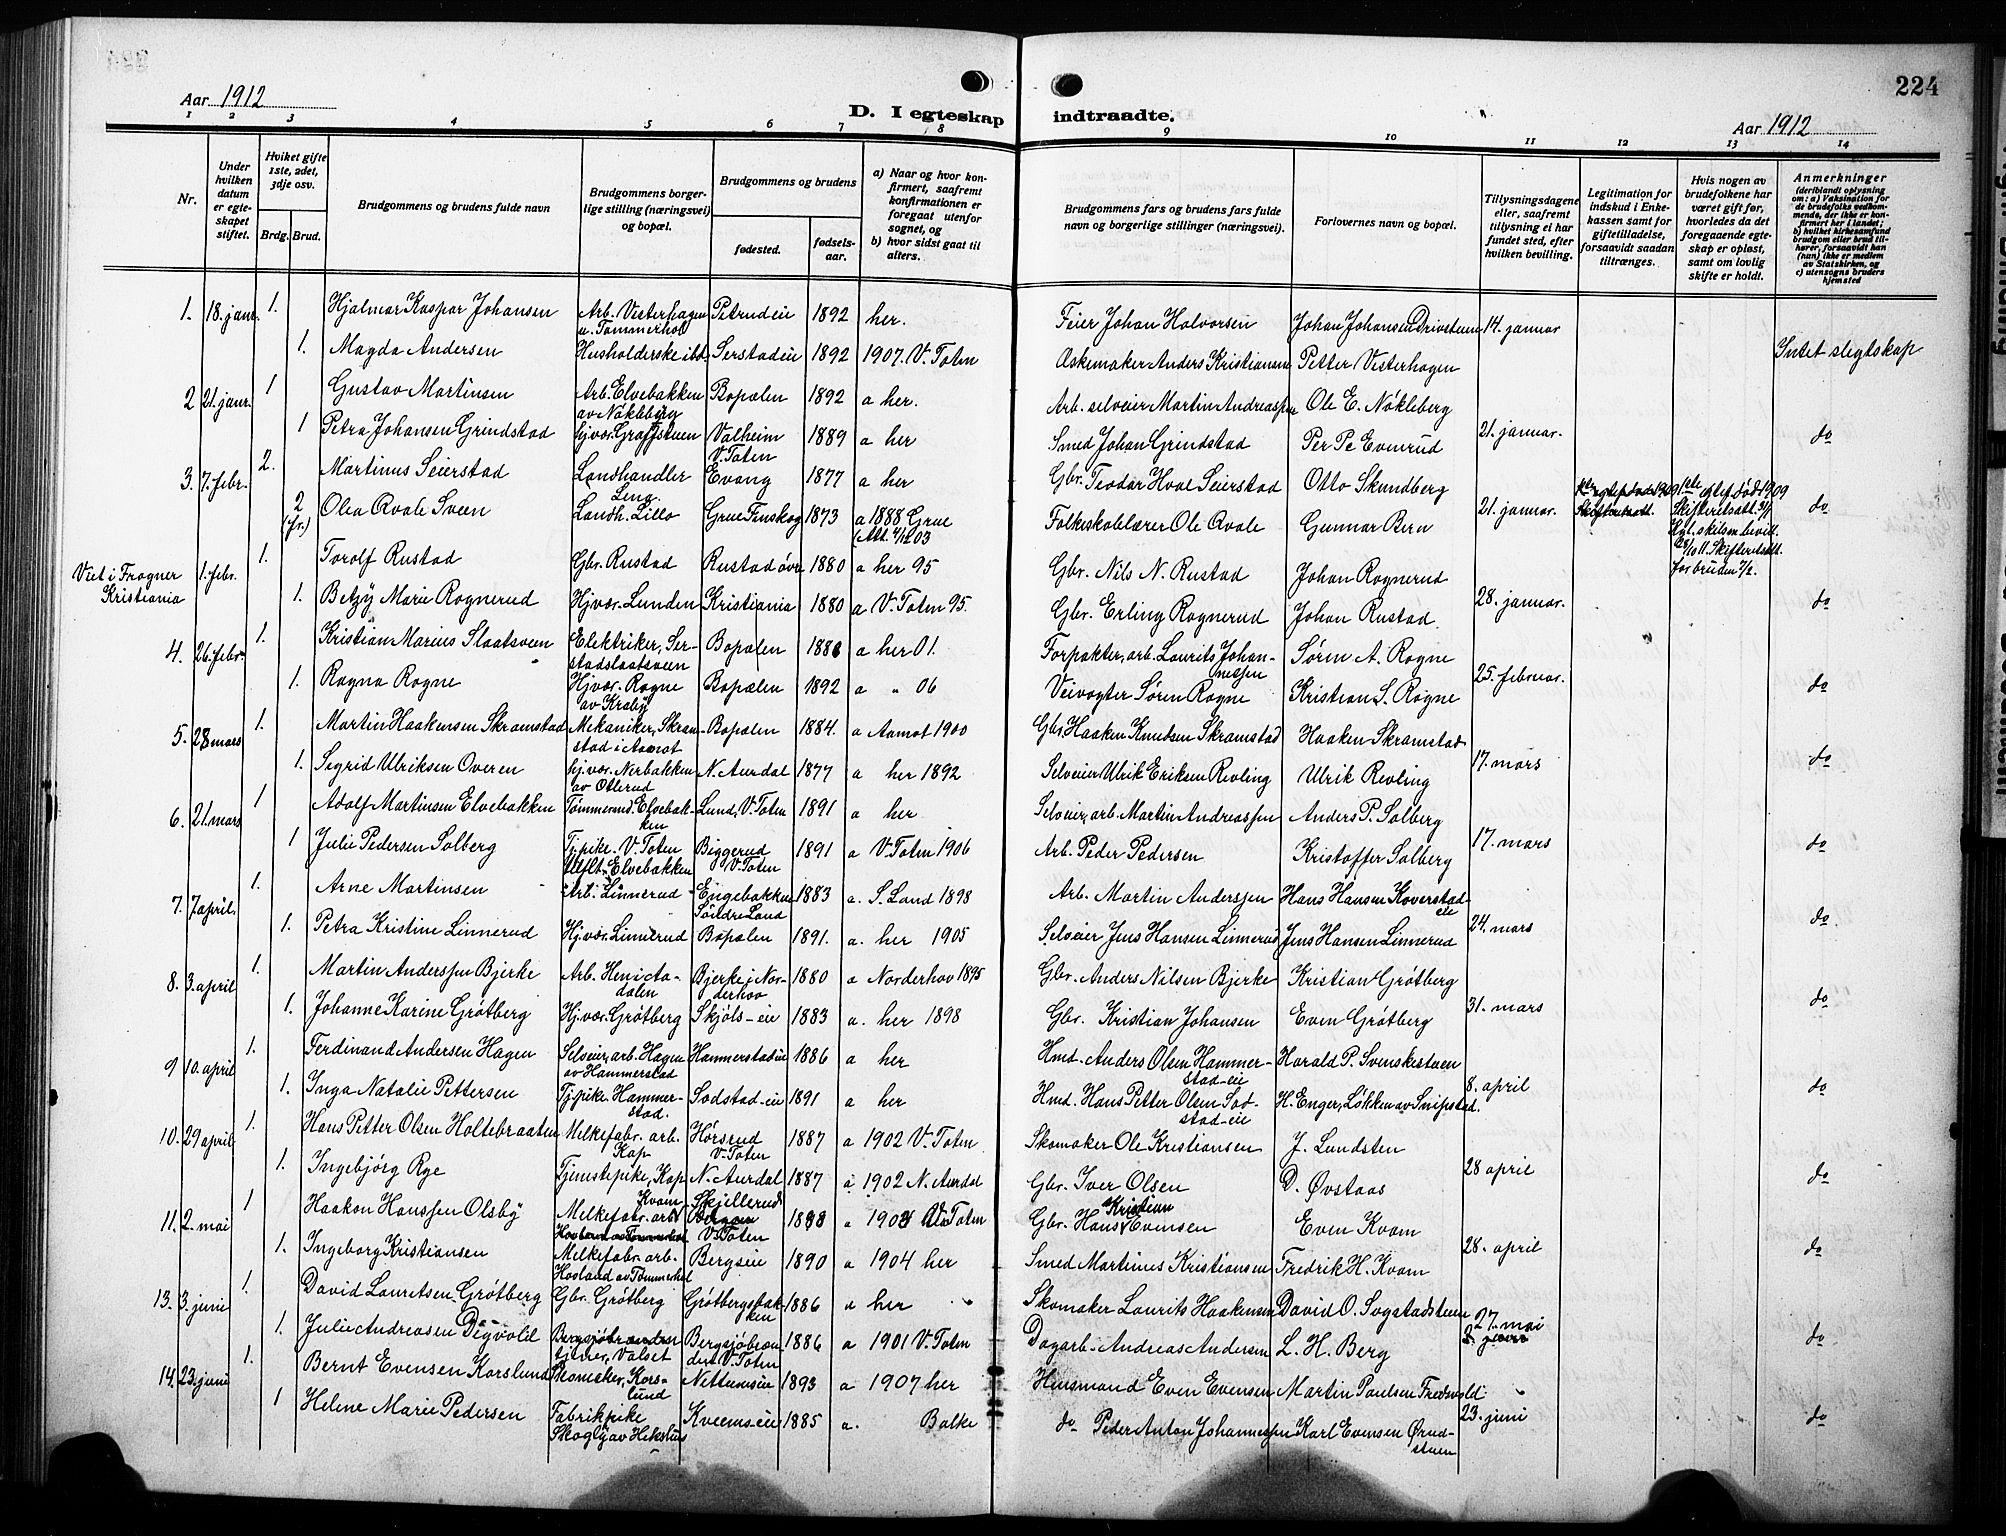 224
Aar 1912
D. I egteskap indtraadte.
Aar 1912
1 2 3 4 5 6 7 8 9 10 11 12 13 14
Nr.
Under hvilken datum er egteskapet stiftet.
Hvilket gifte 1ste, 2det, 3dje osv.
Brdg. Brud.
Brudgommens og brudens fulde navn
Brudgommens borgerlige stilling (næringsvei) og bopæl.
Brudgommens og brudens
fødested.
fødselsaar.
a) Naar og hvor konfirmert, saafremt konfirmationen er foregaat utenfor sognet, og
b) hvor sidst gaat til alters.
Brudgommens fars og brudens fars fulde navn og borgerlige stillinger (næringsvei).
Forlovernes navn og bopæl.
Tillysningsdagene eller, saafremt tillysning ei har fundet sted, efter hvilken bevilling.
Legitimation for indskud i Enkekassen samt for giftetilladelse, forsaavidt saadan tiltrænges.
Hvis nogen av brudefolkene har været gift før, hvorledes da det foregaaende egteskap er opløst, samt om lovlig skifte er holdt.
Anmerkninger (deriblandt oplysning om: a) Vaksination for de brudefolks vedkommende, der ikke er konfirmert her i landet; b) hvilket kirkesamfund brudgom eller brud tilhører, forsaavidt han (hun) ikke er medlem av Statskirken, og c) utensogns bruders hjemsted
1. 18. janr. 1. Hjalmar Kaspar Johansen Arb. Visterhagen u. Tømmerhol Petrudeie 1892 her. Feier Johan Halvorsen Johan Johansen Drivstuen 14. januar
1. Magda Andersen Husholderske ibd. Serstadeie 1892 1907. V. Toten Askemaker Anders Kristiansen Petter Visterhagen Intet slegtskap
2 21. janr. 1 Gustav Martinsen Arb. Elvebakken av Nøkleberg Bopælen 1892 a her. Arb. selveier Martin Andreassen Ole E. Nøkleberg
1 Petra Johansen Grindstad hj.vær. Graffsteen Valheim V. Toten 1889 a her Smed Johan Grindstad Per Pe Evenrud 21. januar. do
3. 7. febr. 2. Martinus Seierstad Landhandler Lena Evang 1877 a her Gbr. Teodar Hval Seierstad Otto Skundberg
2 (fr.) Olea Qvale Sveen Landh. Lillo Grue Finskog 1873 a 1888 Grue Folkeskolelærer Ole Qvale Gunnar Bern 21. januar. do
Viet i Frogner Kristiania 1. febr. 1. Torolf Rustad Gbr. Rustad Rustad øvr 1880 a her 95 Gbr. Nils N. Rustad Johan Rognerud
1. Betzy Marie Rognerud Hj.vær. Lunden Kristiania 1880 a V. Toten 95. Gbr. Erling Rognerud Johan Rustad 28. januar. do
4. 26. febr. 1. Kristian Marius Slaatsveen Elektriker, Serstadslaatsveen Bopælen 1886 a her 01. Forpakter, arb. Laurits Johannessen Søren A. Rogne
1. Ragna Rogne Hj.vær. Rogne av Kraby Bopælen 1892 a " 06 Veivogter Søren Rogne Kristian S. Rogne 25. februar. do
5. 28 mars 1. Martin Haakensen Skramstad Mekaniker, Skramstad i Aamot Bopælen 1884. a Aamot 1900 Gbr. Haaken Knudsen Skramstad Haaken Skramstad
1. Sigrid Ulriksen Overen hj.vær. Nerbakken av Oterud N. Aurdal 1877 a her 1892 Selveier Ulrik Eriksen Revling Ulrik Revling 17. mars do
6. 21. mars 1 Adolf Martinsen Elvebakken Tømmermd. Elvebakken Lund, V. Toten 1891 a her Selveier, arb. Martin Andreassen Anders P. Solberg
1 Julie Pedersen Solberg Tj.pike. V. Toten Elvebakken Biggerud V. Toten 1891 a V. Toten 1906 Arb. Peder Pedersen Kristoffer Solberg 17. mars do
7. 7 april. 1. Arne Martinsen Arb. Linnerud Engebakken Søndre Land 1883 a. S. Land 1898 Arb. Martin Anderssen Hans Hansen Koverstadeie
1. Petra Kristine Linnerud Hj.vær. Linnerud Bopælen 1891. a. her 1905 Selveier Jens Hansen Linnerud Jens Hansen Linnerud 24. mars do
8. 3. april 1. Martin Anderssen Bjerke Arb. Henictadalen Bjerke i Norderhov 1880 a Norderhov 1895 Gbr. Anders Nilsen Bjerke Kristian Grøtberg
1. Johanne Karine Grøtberg Hj.vær. Grøtberg Skjøls-eie 1883 a. her 1898 Gbr. Kristian Johansen Even Grøtberg 31. mars do
9 10. april 1. Ferdinand Andersen Hagen Selveier, arb. Hagen av Hammerstad Hammerstadeie 1886 a her Hmd. Anders Olsen Hammerstad-eie Harald P. Svenskestuen
1. Inga Natalie Pettersen Tj.pike. Hammerstad. Sodstad-eie 1891 a her Hmd. Hans Petter Olsen Sodstad-eie H. Enger, Løkken av Snipstad. 8. april do
10. 29 april 1. Hans Petter Olsen Holtebraaten Melkefabr. arb. Kap Hørsrud V. Toten 1887 a 1902 V. Toten Skomaker Ole Kristiansen J. Lundsten
1. Ingebjørg Rye Tjenestepike, Kap N. Aurdal 1887 a 1902 N. Aurdal Gbr. Iver Olsen D. Øvstaas 28 april do
11. 2. mai 1 Haakon Hanssen Olsby Melkefabr. arb. Kvam Skjellerud V. Toten 1888 a 1903 V. Toten Gbr. Hans Kristian Evensen Even Kvam
1. Ingeborg Kristiansen Melkefabr. arb. Hosland av Tømmerhol Bergseie 1890 a 1904 her Smed Martinus Kristiansen Fredrik H. Kvam 28. april do
13. 3. juni 1. David Lauritsen Grøtberg Gbr. Grøtberg Grøtbergsbakken 1886 a her Skomaker Laurits Haakensen David O. Sogstadstuen
1. Julie Andreasen Digvold Valset V. Toten 1886 a 1901 V. Toten Dagarb. Andreas Andersen L. H. Berg 27. mai do
14. 23. juni 1. Bernt Evensen Korslund Skomaker, Korslund Nettumseie 1893 a 1907 her Husmand Even Evensen Martin Paulsen Fredvold
1 Helene Marie Pedersen Fabrikpike Skogly av Hekshus Kveemseie 1885 a. Balke do Peder Anton Johannessen Karl Evensen Ørudstuen 23. juni do